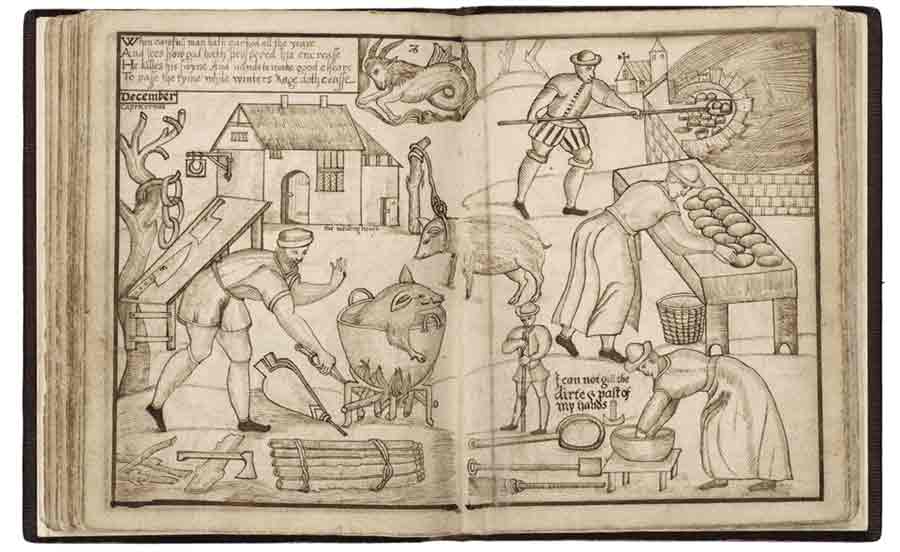 When carefull man hath all the yeare
And sees how god hath prospered his encrease
He killes his swyne And to make good cheare
To passe the tyme while winters Rage doth cease
December
Capricornus
the house
I can not gitt the
dirte & past of
my hands